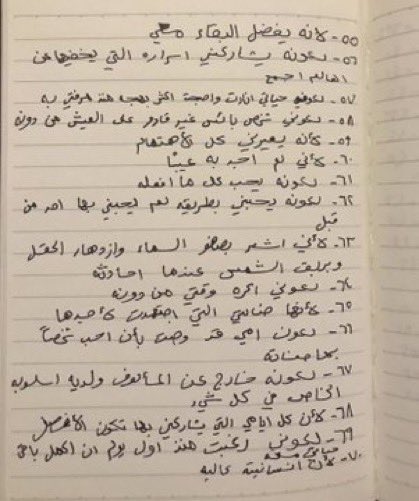 ٥٥- لانه يفضل البقاء معي
٥٦- لكونه يشاركني اسراره التي يخفيها عن
العالم اجمع
٥٧- لكونه حياتي ازدادت واضحة اكثر بهجة منذ معرفتي به
٥٨- لكوني شخص بائس غير قادر على العيش من دونه
٥٩- لأنه يعيرني كل الأهتمام
٦٠- لأني لم اجد به عيبًا
٦١- لكونه يحب كل ما افعله
٦٢- لكونه يحبني بطريقه لم يحبني بها احد من
قبل
٦٣- لأني اشعر بصفو السماء وازدهار الحقل
وبريق الشمس عندما احادثه
٦٤- لكوني اكره وقتي من دونه
٦٥- لأنها ضالتي التي اجتهدت لأجدها
٦٦- لكون امي قد وصت بأن احب شخصاً
بمواصفاته
٦٧- لكونه خارج عن المألوف ولديه اسلوبه
الخاص في كل شيء
٦٨- لأن كل ايامي التي يشاركني بها تكون الأفضل
٦٩- لكوني رغبت منذ اول يوم ان اكمل باقي
حياتي معه
٧٠- لأن انسانيته عاليه